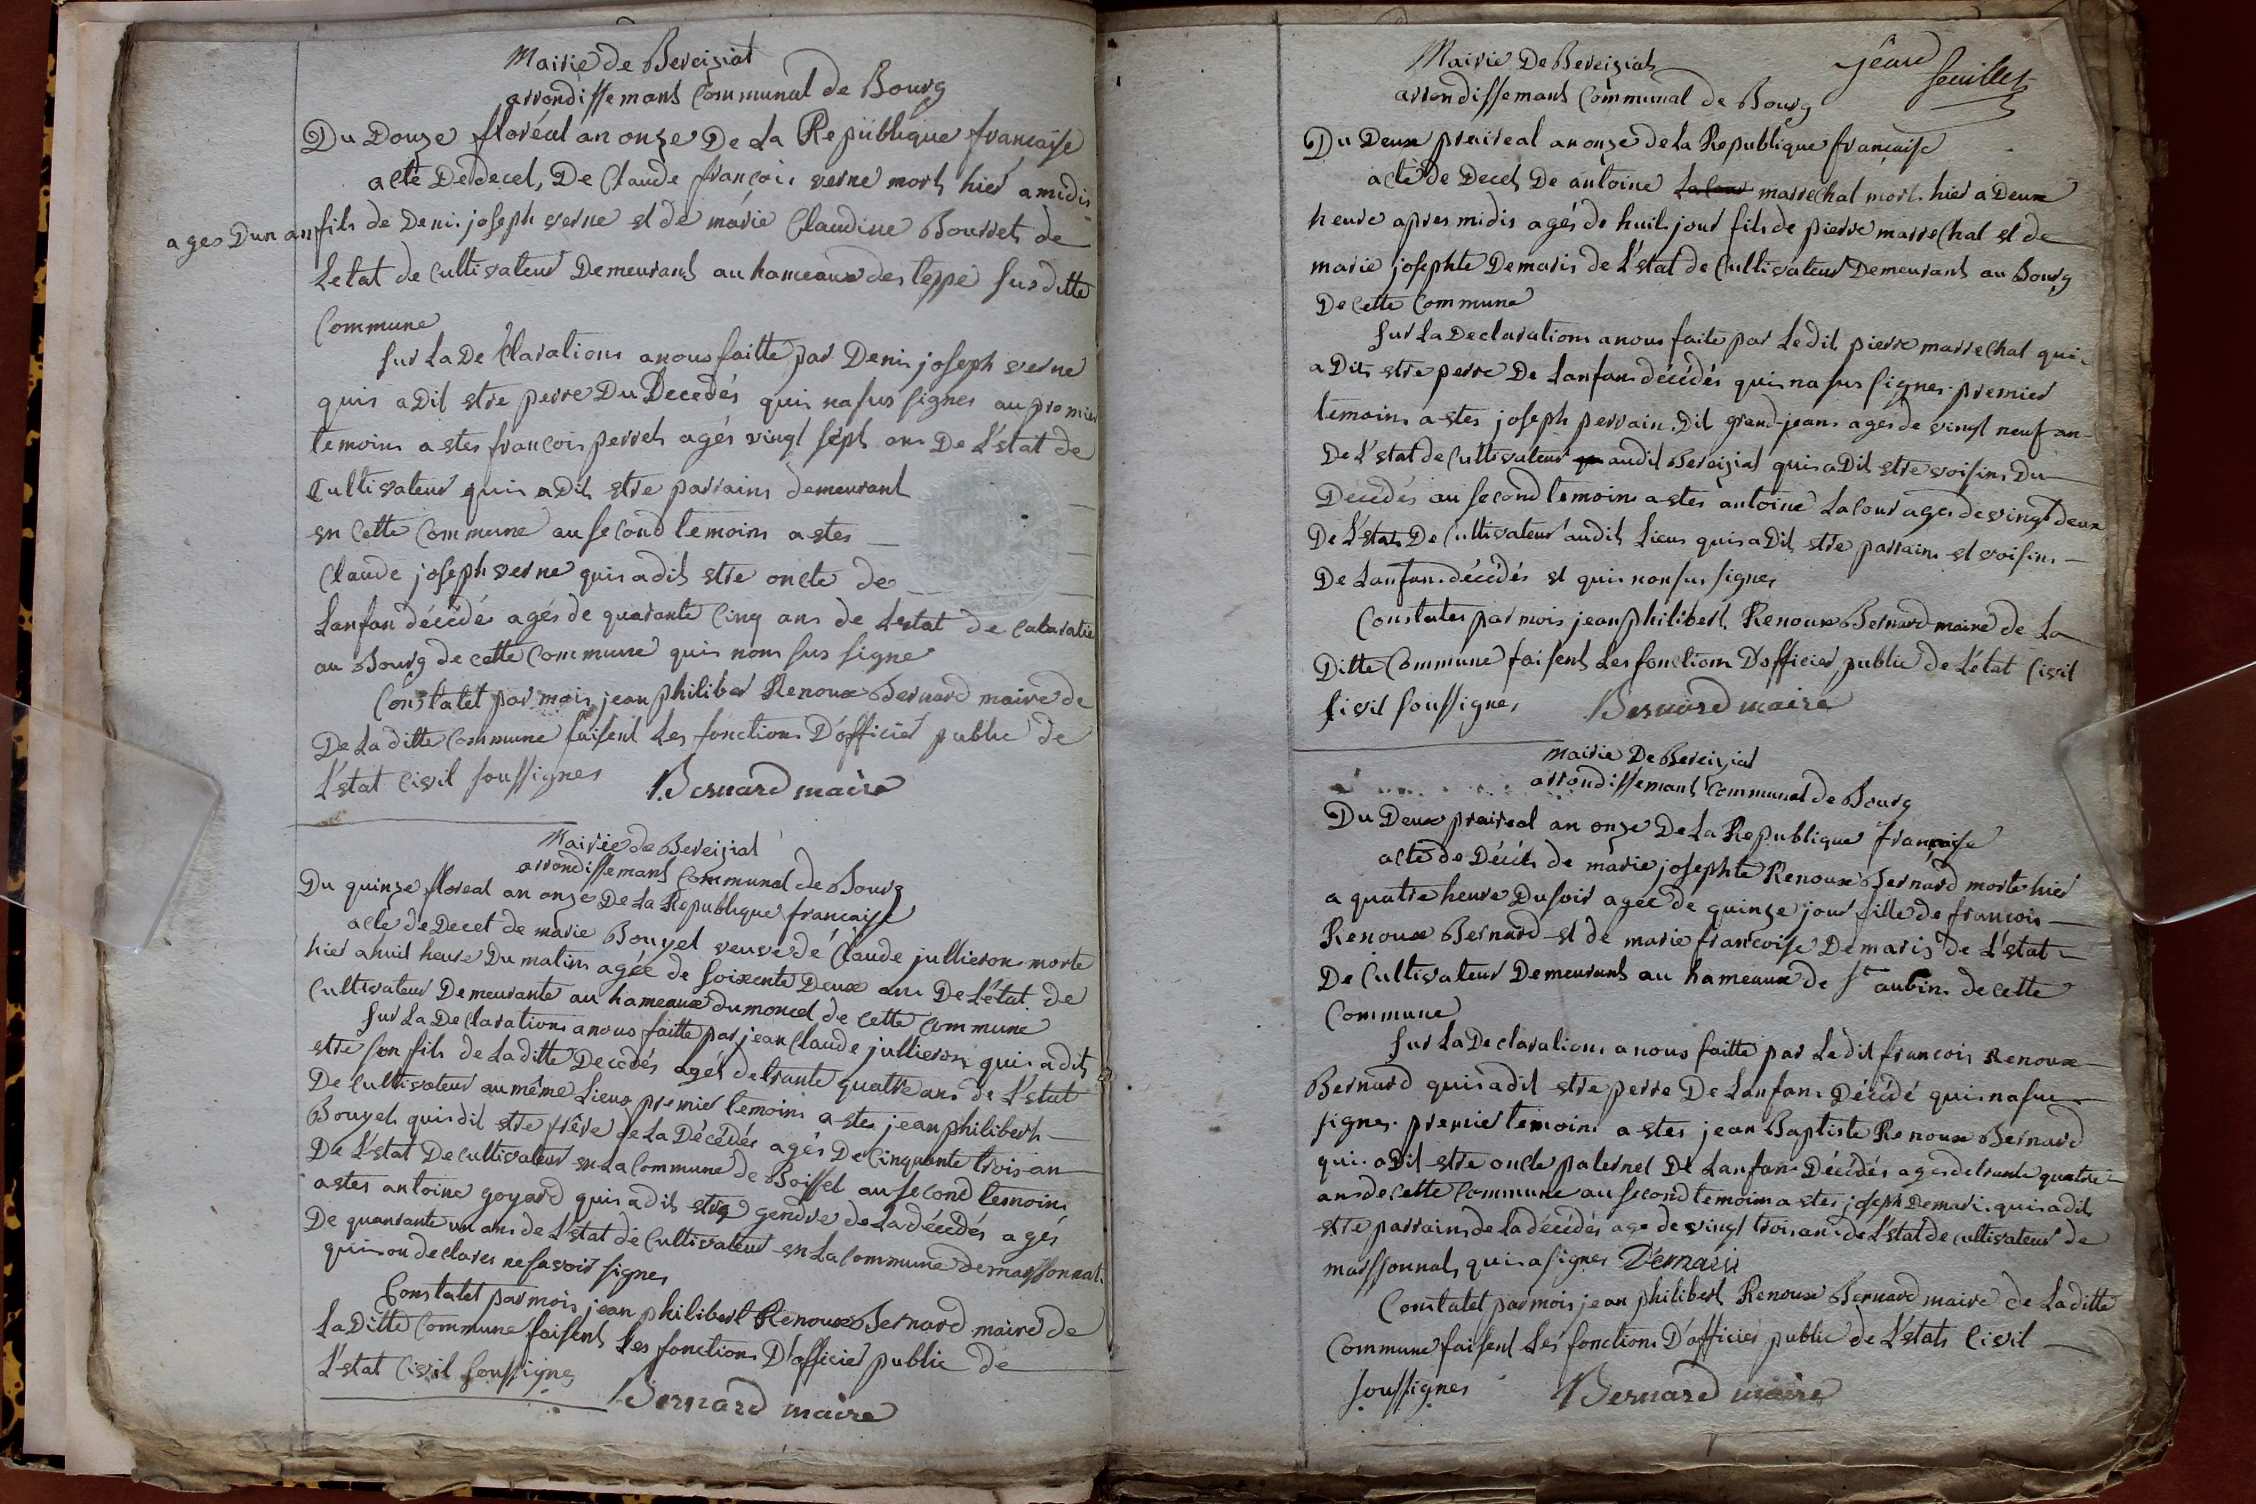 Mairie de Bereiziat
arrondissemant Communal de Bourg
Du Douze floréal an onze De La République francaise
acte De decel, De Claude françois verne mort hier a midis
ages Dun an fils de Denis joseph verne et de marie Claudine Bourdet de
Letat de Cultivateur Demeurant au hameaux des teppe susditte
Commune
sur La De Clarations a nous faitte par Denis joseph verne
quis a Dit estre perre Du Decedés quis na sus signes au premier
temoins a etes francois perret agés vingt sept ans De L'estat de
Cultivateur quis a Dit estre parrains demeurant
en cette Commune au second temoins a etes
Claude joseph verne quis a dit estre oncle de
Lanfan décédés agés de quarante Cinq ans de Lestat de Cabaratie
au Bourg de cette Commune quis nons sus signe
Constatet par mois jean philiber Renoux Bernard maire de
De La ditte Commune faisent Les fonctions D'officier public de
L'estat Civil soussignes Bernard maire
Mairie de Bereiziat
arrondissemant Communal de Bourg
Du quinze floreal an onze De La Republique francaise
acte de Decet de marie Bouyet veuve de Claude jullieron morte
hier a huit heure Du matins agée de soixente Deux ans De L'état de
Cultivateur Demeurante au hameaux du moncel de cette Commune
sur La De Clarations a nous faitte par jean Claude jullieron quis a dit
estre son fils de La ditte Decedés agés de trante quatre ans de L'estat
De Cultivateur au même Lieux premier temoins a etes jean philibert
Bouyet quis dit estre frêre de La Décédés agés De Cinquante trois an
De L'estat De cultivateur en La Commune de Boissel au second temoins
a etes antoine goyard quis a dit estre gendre de La décédés agés
De quarante un ans de L'estat de Cultivateur en La Commune de marssonnat
quis on declares ne savoir signes
Constatet par mois jean philibert Renoux Bernard maire de
La Ditte Commune faisent Les fonctions D'officier public de
L'estat Civil soussignes
Bernard maire
feuillet
Mairie De Bereiziat
arrondissemant Communal de Bourg
Du Deux preireal an onze de La Republique francaise
acte de Decet De antoine La Cour marrechal mort hier a Deux
heure apres midis agés de huit jour fils de pierre marrechal et de
marie josephte Demaris de L'estat de Cultivateur Demeurant au Bourg
De cette Commune
sur La Declarations a nous faite par Le dit pierre marrechal quis
a Dit estre perre De Lanfans décédés quis na sus signes premier
temoins a etes joseph pervain Dit grand-jeans ages de vingt neuf an
De L'estat de Cultivateur audit Bereiziat quis a Dit estre voisins Du
Décédés au second temoins a etes antoine La Cour ages de vingt deux
De L'estat De Cultivateur audit Lieux quis a Dit estre parrains et voisins
De Lanfans décédés et quis non sus signes
Constates par mois jean philibert Renoux Bernard maire de La
Ditte Commune faisent Les fonctions D'officier public de L'état Civil
Civil soussignes Bernard maire
Mairie De Bereiziat
arrondissemant Communal de Bourg
Du Deux preireal an onze De La Republique francaise
acte de Décés de marie josephte Renoux Bernard morte hier
a quatre heure Du soir agée de quinze jour fille de francois
Renoux Bernard et de marie francoise Demaris de L'estat
De Cultivateur Demeurant au hameaux de St aubins de cette
Commune
sur La Declarations a nous faitte par Le dit francois Renoux
Bernard quis a dit estre perre De Lanfans Décédé quis na sus
signes premier temoins a etes jean Baptiste Renoux Bernard
quis a Dit estre oncle paternel De Lanfans Décédés ages de trante quatre
ans de cette Commune au second temoins a etes joseph Demaris quis a dit
estre parrains de La décédés age de vingt trois an de L'estat de cultivateur de
marssonnat quis a signes Demaris
Constatet par mois jean philibert Renoux Bernard maire de La ditte
Commune faisent Les fonctions D'officier public de L'estats Civil
soussignes Bernard maire